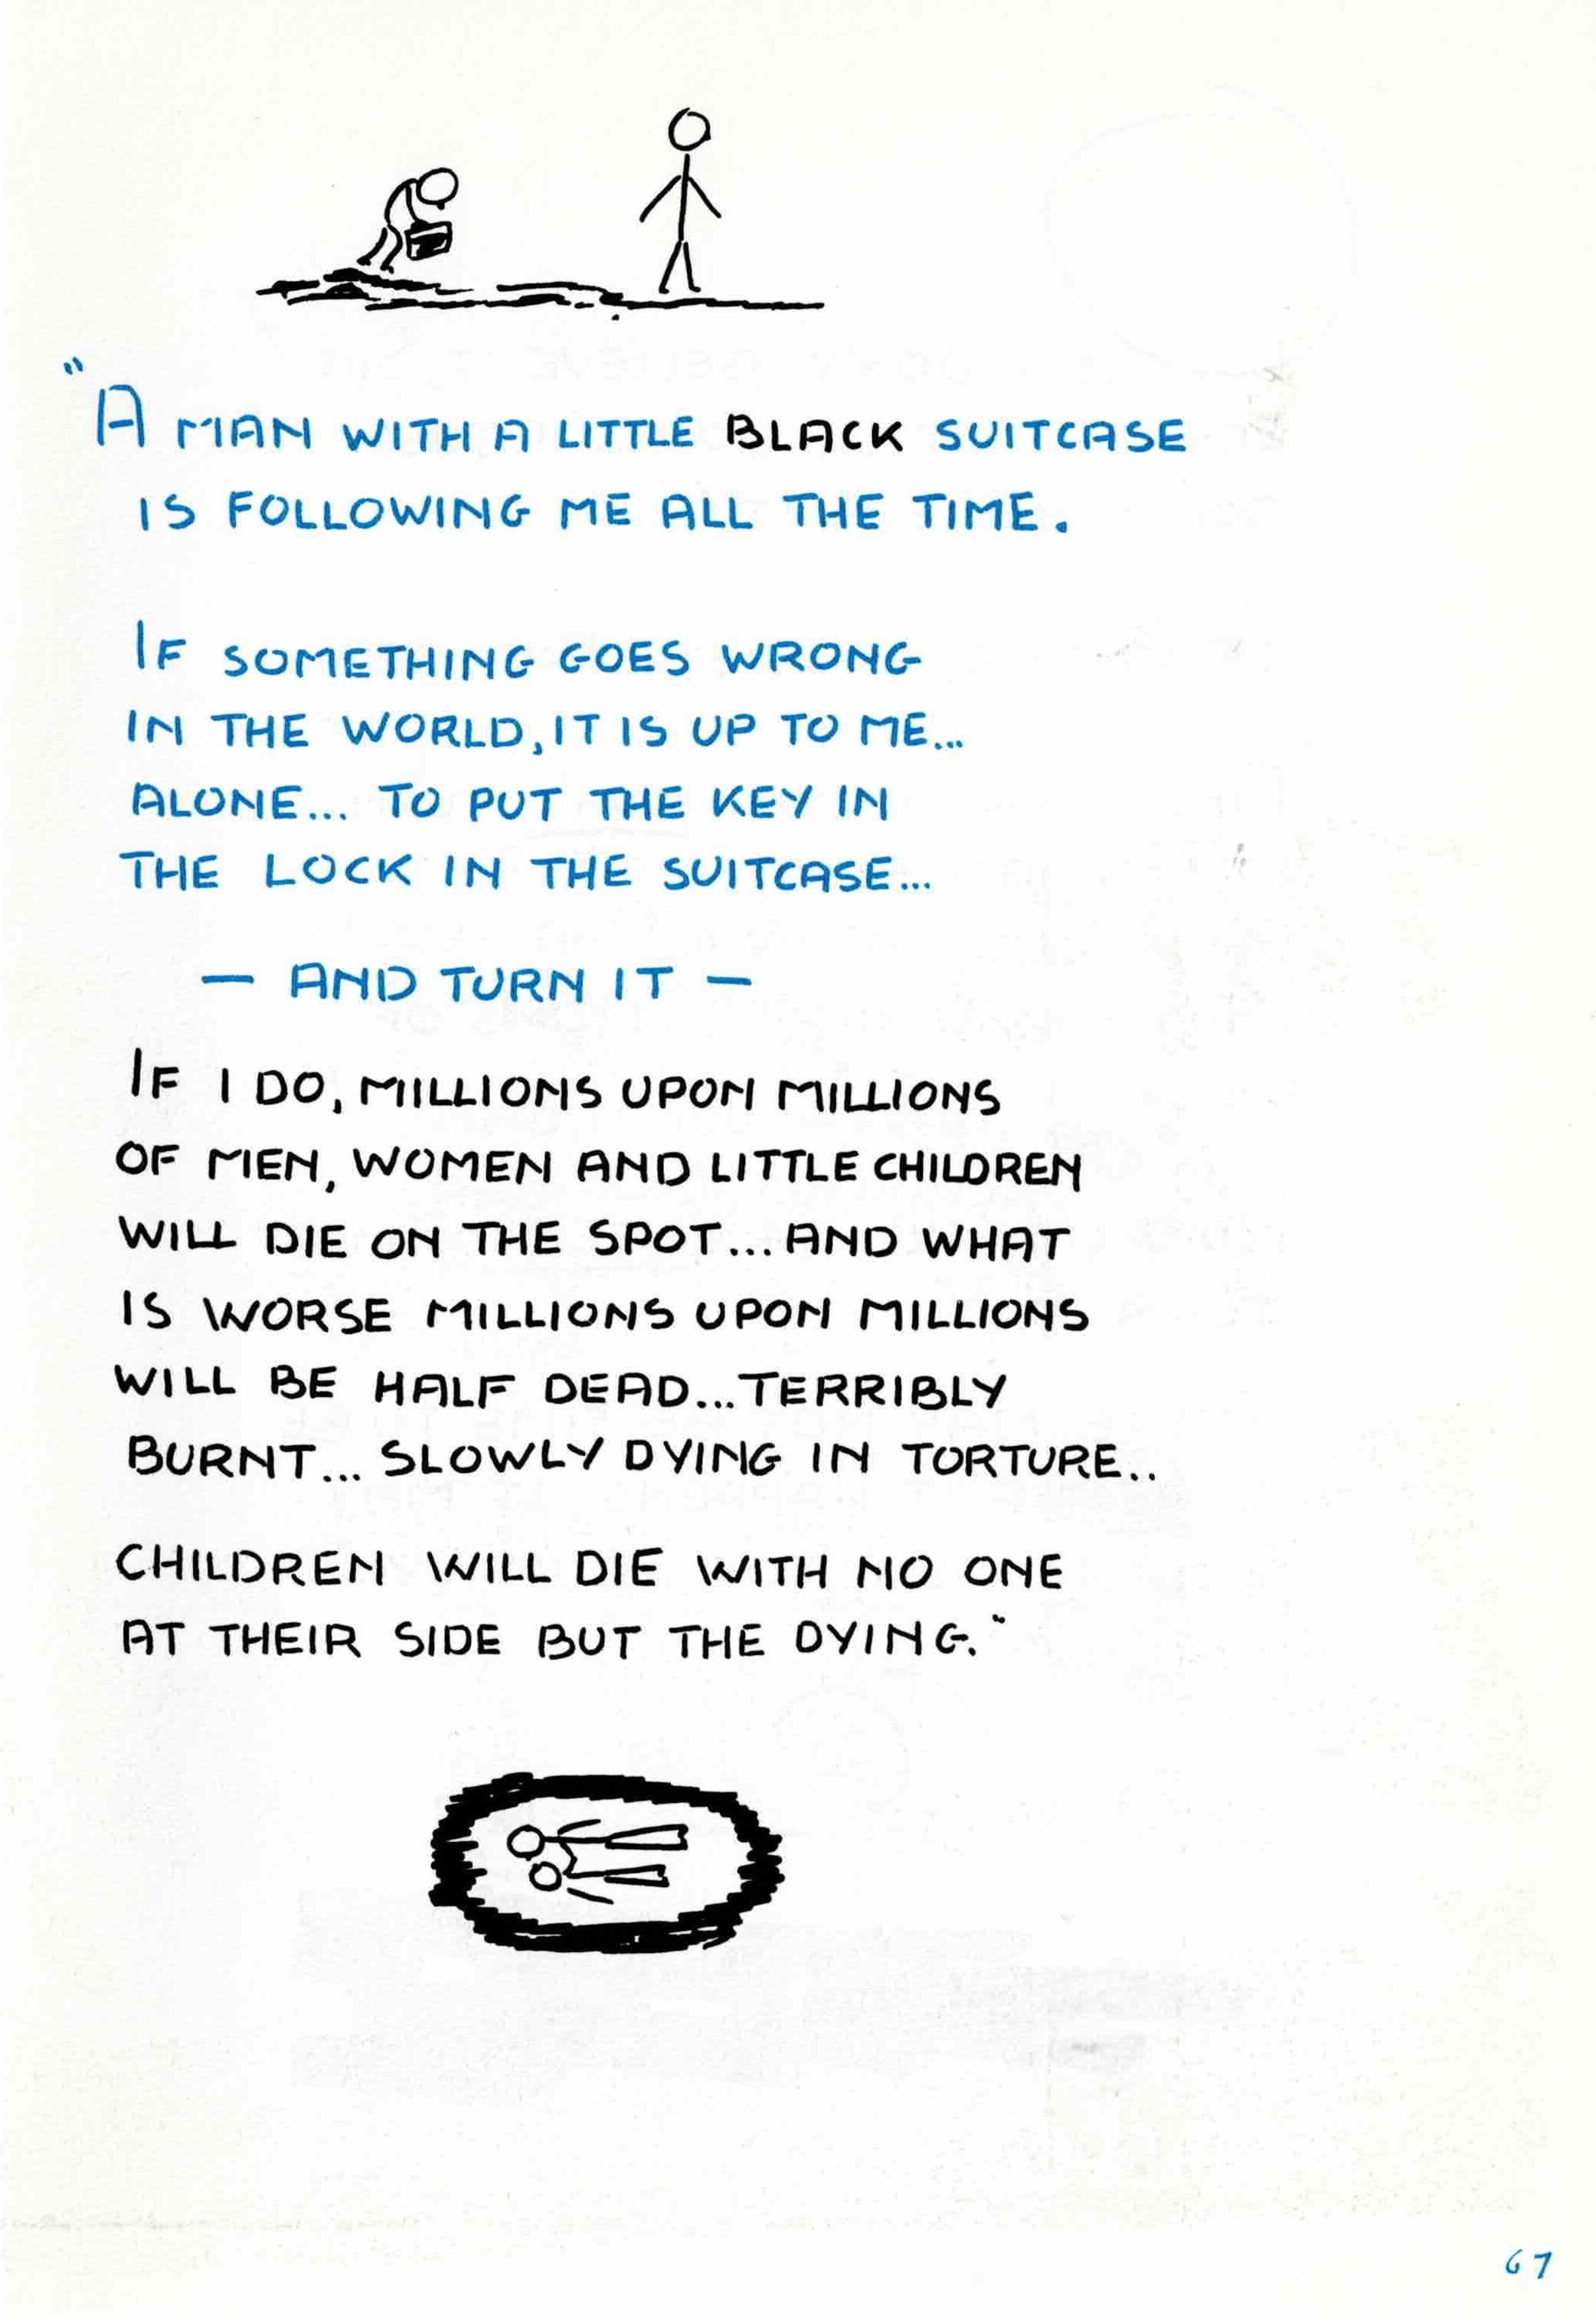 "A MAN WITH A LITTLE BLACK SUITCASE
IS FOLLOWING ME ALL THE TIME.
IF SOMETHING GOES WRONG
IN THE WORLD, IT IS UP TO ME...
ALONE... TO PUT THE KEY IN
THE LOCK IN THE SUITCASE...
— AND TURN IT —
IF I DO, MILLIONS UPON MILLIONS
OF MEN, WOMEN AND LITTLE CHILDREN
WILL DIE ON THE SPOT... AND WHAT
IS WORSE MILLIONS UPON MILLIONS
WILL BE HALF DEAD... TERRIBLY
BURNT... SLOWLY DYING IN TORTURE..
CHILDREN WILL DIE WITH NO ONE
AT THEIR SIDE BUT THE DYING."
67